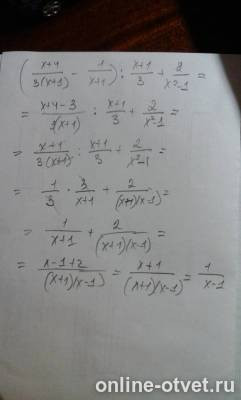 ( x+4/3(x+1) - 1/x+1 ) : x+1/3 + 2/x²-1 =
= x+4-3/3(x+1) : x+1/3 + 2/x²-1 =
= x+1/3(x+1) : x+1/3 + 2/x²-1 =
= 1/3 · 3/x+1 + 2/(x+1)(x-1) =
= 1/x+1 + 2/(x+1)(x-1) =
= x-1+2/(x+1)(x-1) = x+1/(x+1)(x-1) = 1/x-1
online-otvet.ru